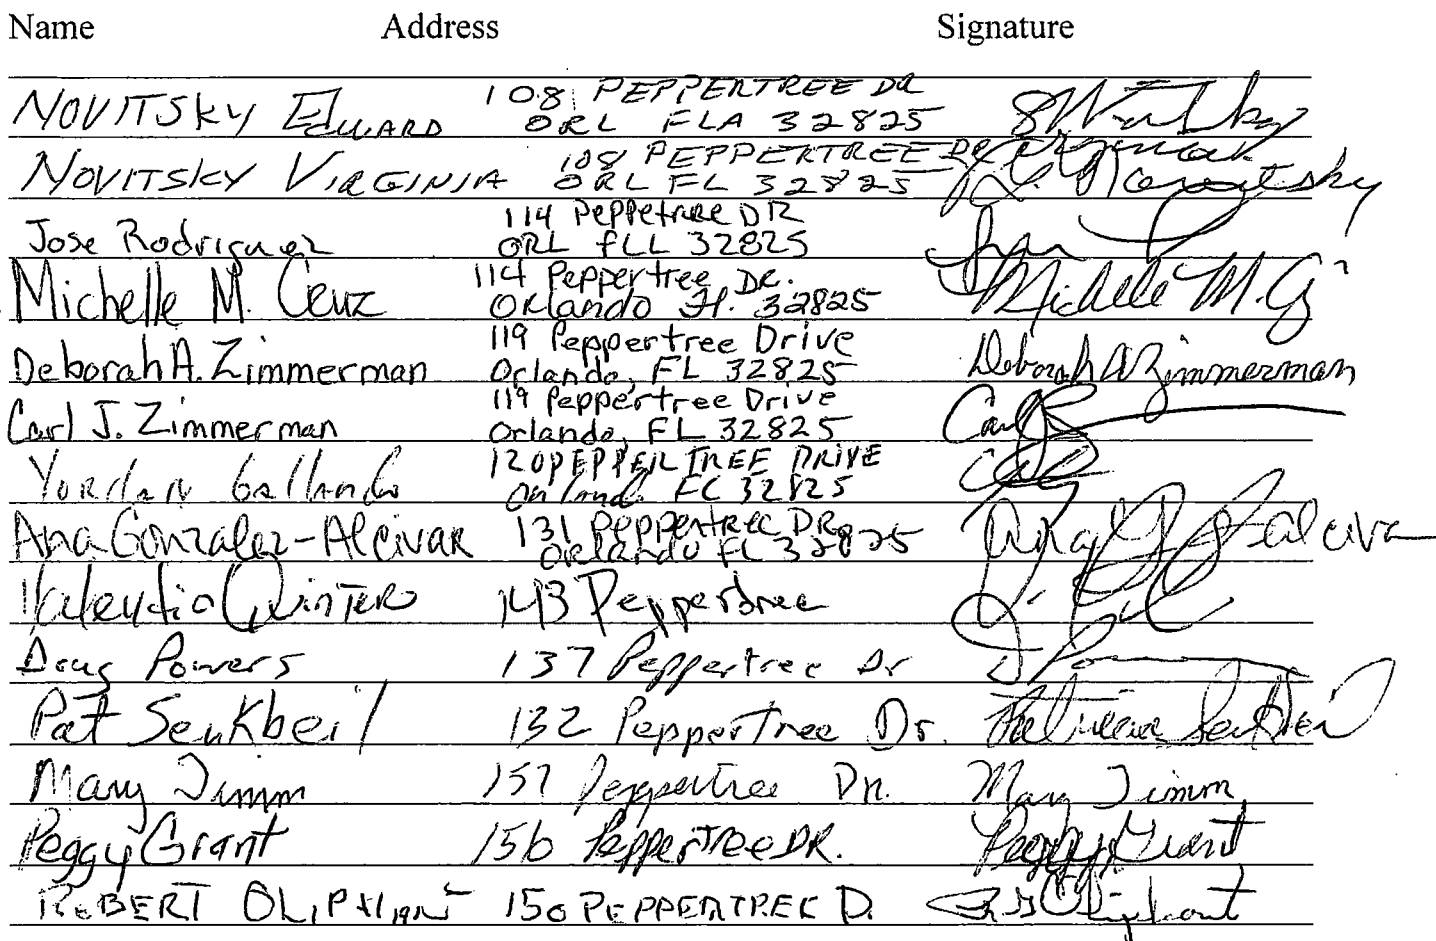 Name Address Signature
NOVITSKY EDWARD 108 PEPPERTREE DR
ORL FLA 32825
NOVITSKY VIRGINIA 108 PEPPERTREE DR Virginia
ORL FL 32825 L. Novitsky
Jose Rodriguez 114 Peppetree DR
ORL FLL 32825
Michelle M. Cruz 114 Peppertree DR. Michelle M. C
Orlando Fl. 32825
Deborah A. Zimmerman 119 Peppertree Drive Deborah A Zimmerman
Orlando, FL 32825
Carl J. Zimmerman 119 Peppertree Drive
Orlando, FL 32825
Yordan Gallando 120 PEPPERTREE DRIVE
Orlando FL 32825
Ana Gonzalez-Alcivar 131 Peppertree DR Ana G Alcivar
Orlando FL 32825
QUINTERO 143 Peppertree
Doug Powers 137 Peppertree Dr D P
Pat Senkbeil 132 Peppertree Dr. Senkbeil
Mary Timm 157 Peppertree Dr. Mary Timm
Peggy Grant 156 Peppertree DR. Peggy Grant
ROBERT OLIPHANT 150 PEPPERTREE D. Oliphant